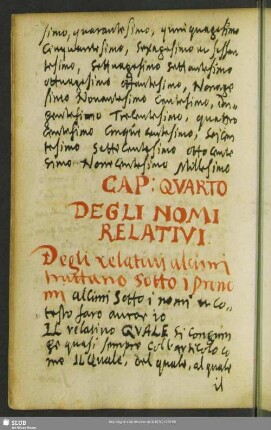 simo, quarantesimo, quinquagesimo
Cinquantesimo, Sexagesimo ne sessan
tesimo, Settuagesimo Settantesimo
ottuagesimo ottantesimo, Nonage
simo Nonantesimo Centesimo,
gentesimo Trecentesimo, quattro
centesimo Cinque centesimo, Seicen
tesimo Settecentesimo otto cente
simo Nove centesimo Millesimo
CAP: QVARTO
DEGLI NOMI
RELATIVI
Degli relativi alcuni
trattano sotto i prono
mi alcuni sotto i nomi
testo faro
IL relativo QVALE Si congiun
ge quasi sempre coll'articolo co
me il quale, del quale, al quale
il
SLUB